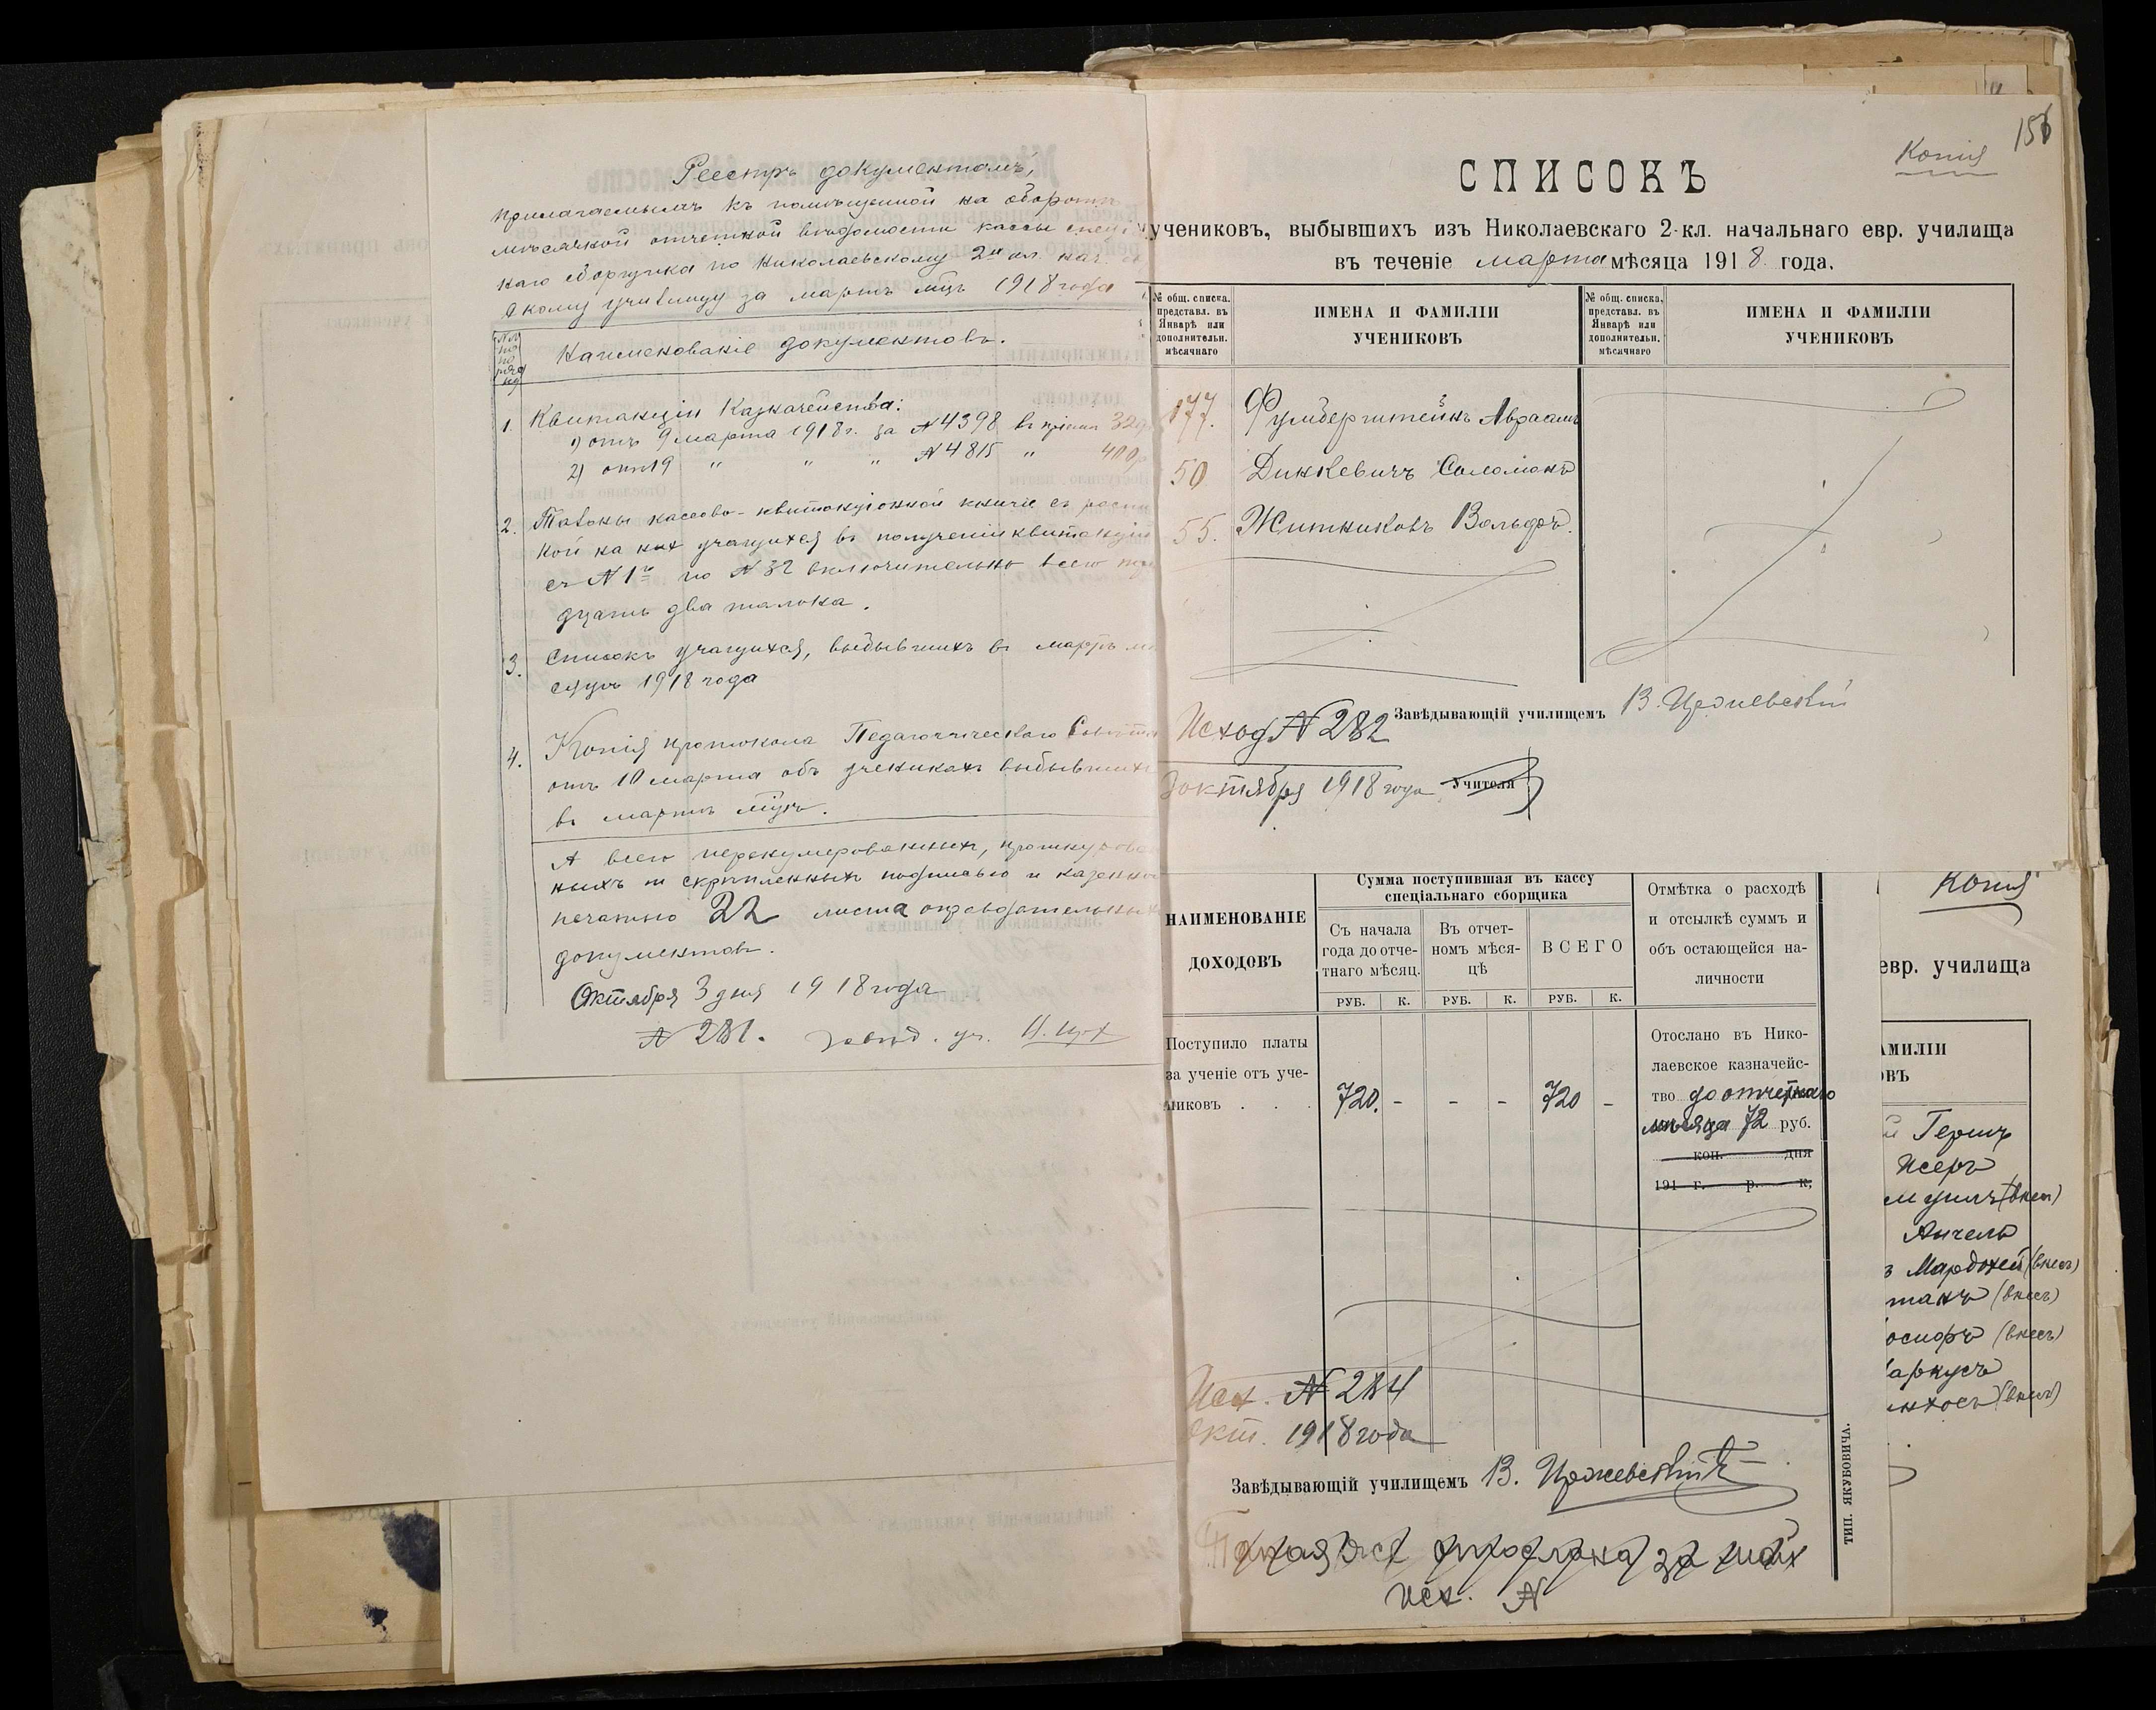 Реестръ документамъ,
прилагаемымъ къ помѣщенной на оборотѣ
мѣсячной отчетной вѣдомости кассы
каго сборщика по Николаевскому 2 кл. нач.
скому училищу за мартъ мцъ 1918 года
Наименованіе документовъ.
1. Квитанціи Казначейства:
1) отъ 9 марта 1918 г. за № 4398 въ пріемѣ
2) отъ 19 " " " № 4815 "
2. Талоны кассово-квитанціонной книги съ
кой на них учащихся въ полученіи квитанцій
съ № 1го по № 32 включительно всего
дцать два талона.
3. Списокъ учащихся, выбывшихъ въ мартѣ
сяцѣ 1918 года
4. Копія протокола Педагогическаго
отъ 10 марта объ ученикахъ выбывшихъ
въ мартѣ мцѣ.
А всего перенумерованныхъ,
ныхъ и скрѣпленныхъ подписью и казенной
печатью 22 листа оправдательныхъ
документовъ.
Октября 3 дня 1918 года
№ 281. Завѣд. уч.
156
Копія
СПИСОКЪ
учениковъ, выбывшихъ изъ Николаевскаго 2-кл. начальнаго евр. училища
въ теченіе марта мѣсяца 1918 года.
№ общ. списка, представл. въ Январѣ или дополнительн. мѣсячнаго
ИМЕНА И ФАМИЛІИ УЧЕНИКОВЪ
№ общ. списка, представл. въ Январѣ или дополнительн. мѣсячнаго
ИМЕНА И ФАМИЛІИ УЧЕНИКОВЪ
177. Авраамъ
50 Динкевичъ Соломонъ
55. Житниковъ Вольфъ.
Завѣдывающій училищемъ
Исход № 282
3 октября 1918 года Учителя
НАИМЕНОВАНІЕ ДОХОДОВЪ
Сумма поступившая въ кассу
спеціальнаго сборщика
Съ начала года до отчетнаго мѣсяц.
Въ отчетномъ мѣсяцѣ
ВСЕГО
Отмѣтка о расходѣ
и отсылкѣ суммъ и
объ остающейся на-
личности
РУБ. К. РУБ. К. РУБ. К.
Поступило платы
за ученіе отъ уче-
никовъ . . . 720. - - - 720 -
Отослано въ Нико-
лаевское казначейс-
тво до отчетнаго
мѣсяца 72 руб.
коп. дня
191 г. р. к.
Исх. № 284
окт. 1918 года
Завѣдывающій училищемъ
исх. №
ТИП. ЯКУБОВИЧА.
Копія
евр. училища
АМИЛІИ
ОВЪ
Гершъ
Исеръ
(внес)
Анчель
Мардохей (внесъ)
(внесъ)
осифъ (внесъ)
аркусъ
(внесъ)